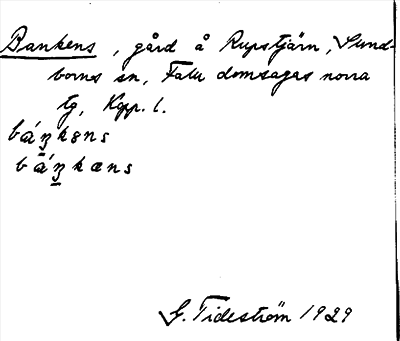 Bankens, gård å Rupstjärn, Sund-
bornes sn, Falu domsagas norra
tg, Kpp. l.
báŋkəns
báŋkæns
G. Tideström 1929